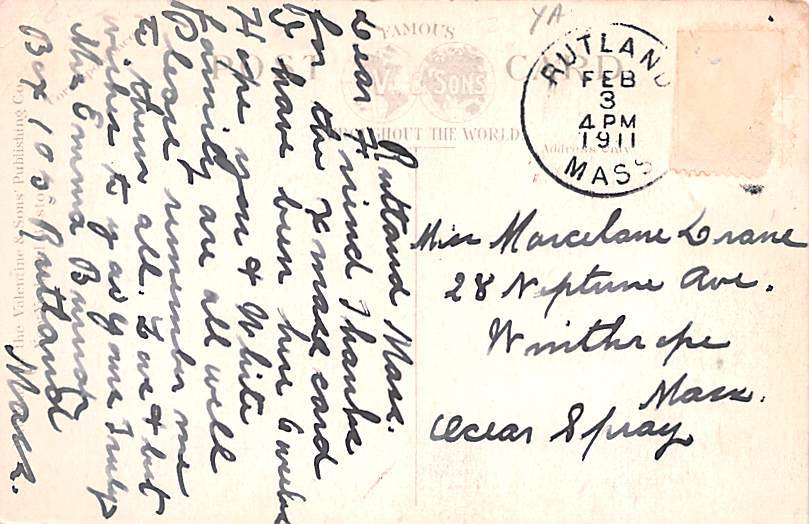 FAMOUS
POST CARD
& SONS
THROUGHOUT THE WORLD
Address Only
RUTLAND
FEB
3
4 PM
1911
MASS
YA
Rutland Mass.
Dear Friend Thanks
for the Xmass card
I have been here 6 weeks
Hope you & White
family are all well
Please remember me
to them all. Love & best
wishes to you Yours Truly
Mrs Emma
Box 103 Rutland
Mass.
Miss Marcelane Crane
28 Neptune Ave.
Winthrope
Mass.
Ocear Spray
the Valentine & Sons' Publishing Co.